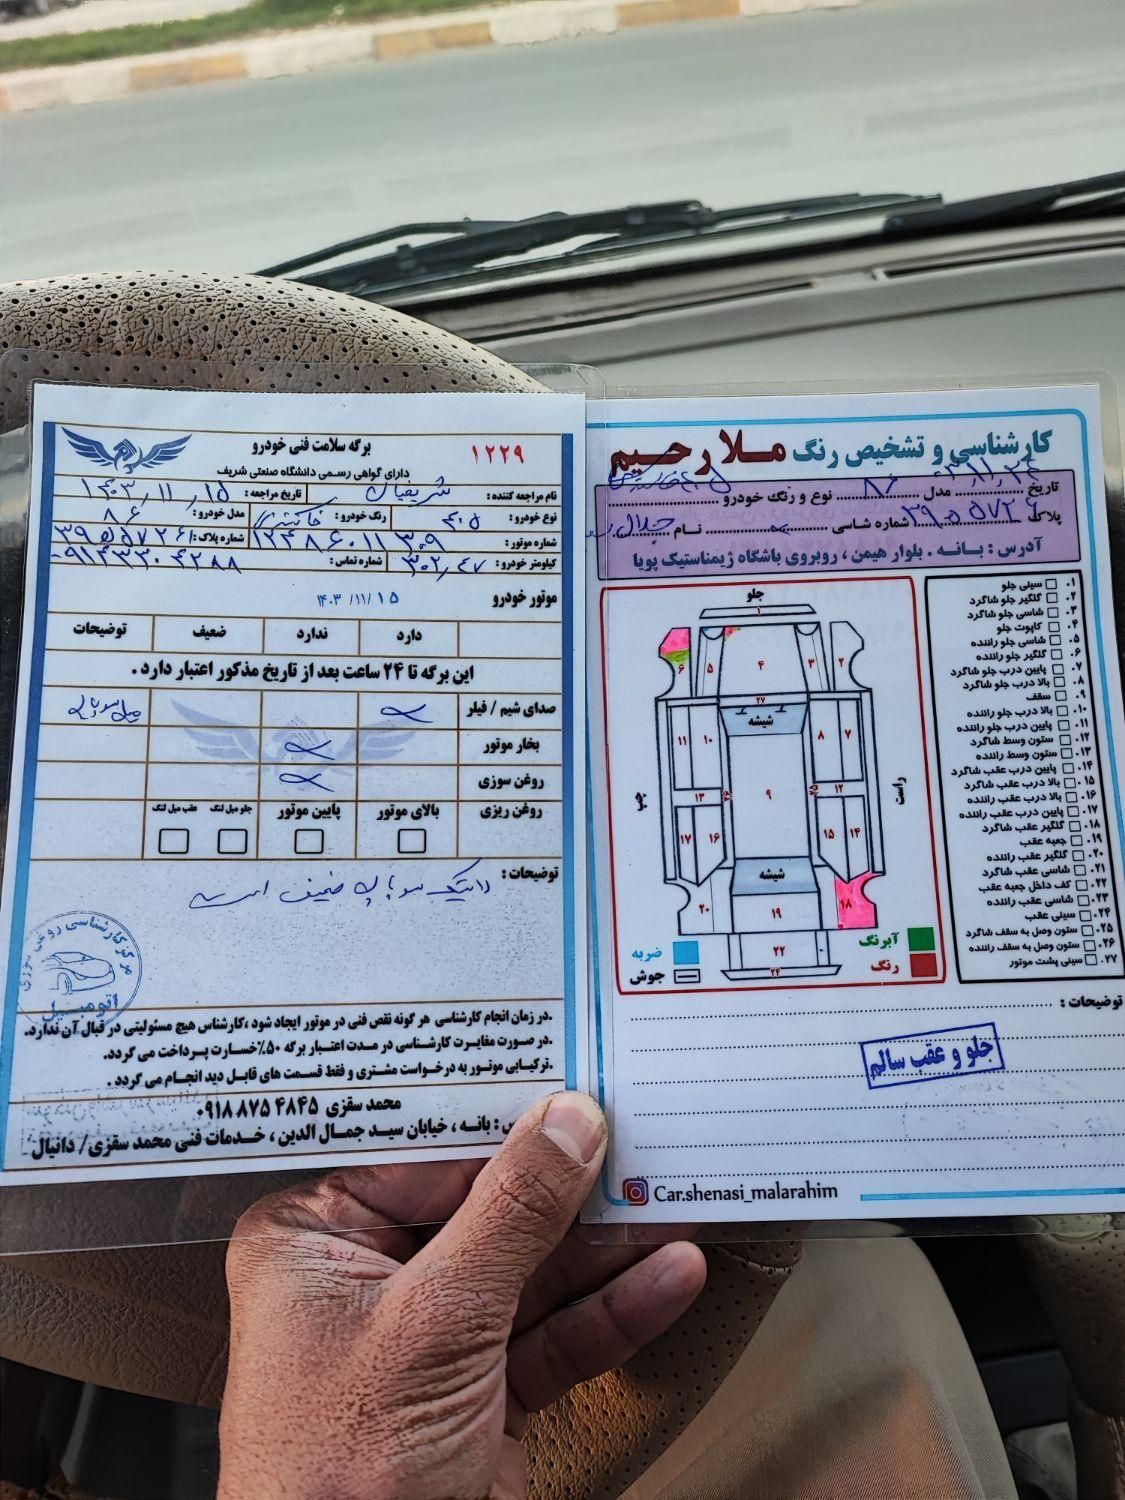 برگه سلامت فنی خودرو
۱۲۲۹
دارای گواهی رسمی دانشگاه صنعتی شریف
نام مراجعه کننده :
تاریخ مراجعه : ۱۴۰۳/۱۱/۱۵
نوع خودرو : ۴۰۵
رنگ خودرو :
مدل خودرو : ۸۶
شماره موتور : ۱۲۴۸۶۰۱۱۳۰۹
شماره پلاک :
کیلومتر خودرو :
شماره تماس : ۰۹۱۴۳۳۰۴۲۸۸
موتور خودرو
۱۴۰۳/۱۱/۱۵
دارد
ندارد
ضعیف
توضیحات
این برگه تا ۲۴ ساعت بعد از تاریخ مذکور اعتبار دارد .
صدای شیم / فیلر
میل سوپاپ
بخار موتور
روغن سوزی
روغن ریزی
بالای موتور
پایین موتور
جلو میل لنگ
عقب میل لنگ
توضیحات :
سوپاپ ضعیف است
مرکز کارشناسی روغن سوزی
اتومبیل
.در زمان انجام کارشناسی هر گونه نقص فنی در موتور ایجاد شود ،کارشناس هیچ مسئولیتی در قبال آن ندارد.
.در صورت مغایرت کارشناسی در مدت اعتبار برگه ۵۰٪خسارت پرداخت می گردد.
.ترکیبابی موتور به درخواست مشتری و فقط قسمت های قابل دید انجام می گردد .
محمد سقزی ۰۹۱۸ ۸۷۵ ۴۸۴۵
س : بانه ، خیابان سید جمال الدین ، خدمات فنی محمد سقزی/ دانیال
کارشناسی و تشخیص رنگ ملا رحیم
تاریخ
مدل ۸۶
نوع و رنگ خودرو
پلاک
شماره شاسی
نام
آدرس : بانه . بلوار هیمن ، روبروی باشگاه ژیمناستیک پویا
جلو
چپ
راست
شیشه
شیشه
۱
۲
۳
۴
۵
۶
۷
۸
۹
۱۰
۱۱
۱۲
۱۳
۱۴
۱۵
۱۶
۱۷
۱۸
۱۹
۲۰
۲۲
۲۴
۲۵
۲۶
۲۷
ضربه
جوش
آبرنگ
رنگ
۱. سینی جلو
۲. گلگیر جلو شاگرد
۳. شاسی جلو شاگرد
۴. کاپوت جلو
۵. شاسی جلو راننده
۶. گلگیر جلو راننده
۷. پایین درب جلو شاگرد
۸. بالا درب جلو شاگرد
۹. سقف
۱۰. بالا درب جلو راننده
۱۱. پایین درب جلو راننده
۱۲. ستون وسط شاگرد
۱۳. ستون وسط راننده
۱۴. پایین درب عقب شاگرد
۱۵. بالا درب عقب شاگرد
۱۶. بالا درب عقب راننده
۱۷. پایین درب عقب راننده
۱۸. گلگیر عقب شاگرد
۱۹. جعبه عقب
۲۰. گلگیر عقب راننده
۲۱. شاسی عقب شاگرد
۲۲. کف داخل جعبه عقب
۲۳. شاسی عقب راننده
۲۴. سینی عقب
۲۵. ستون وصل به سقف شاگرد
۲۶. ستون وصل به سقف راننده
۲۷. سینی پشت موتور
توضیحات :
جلو و عقب سالم
Car.shenasi_malarahim